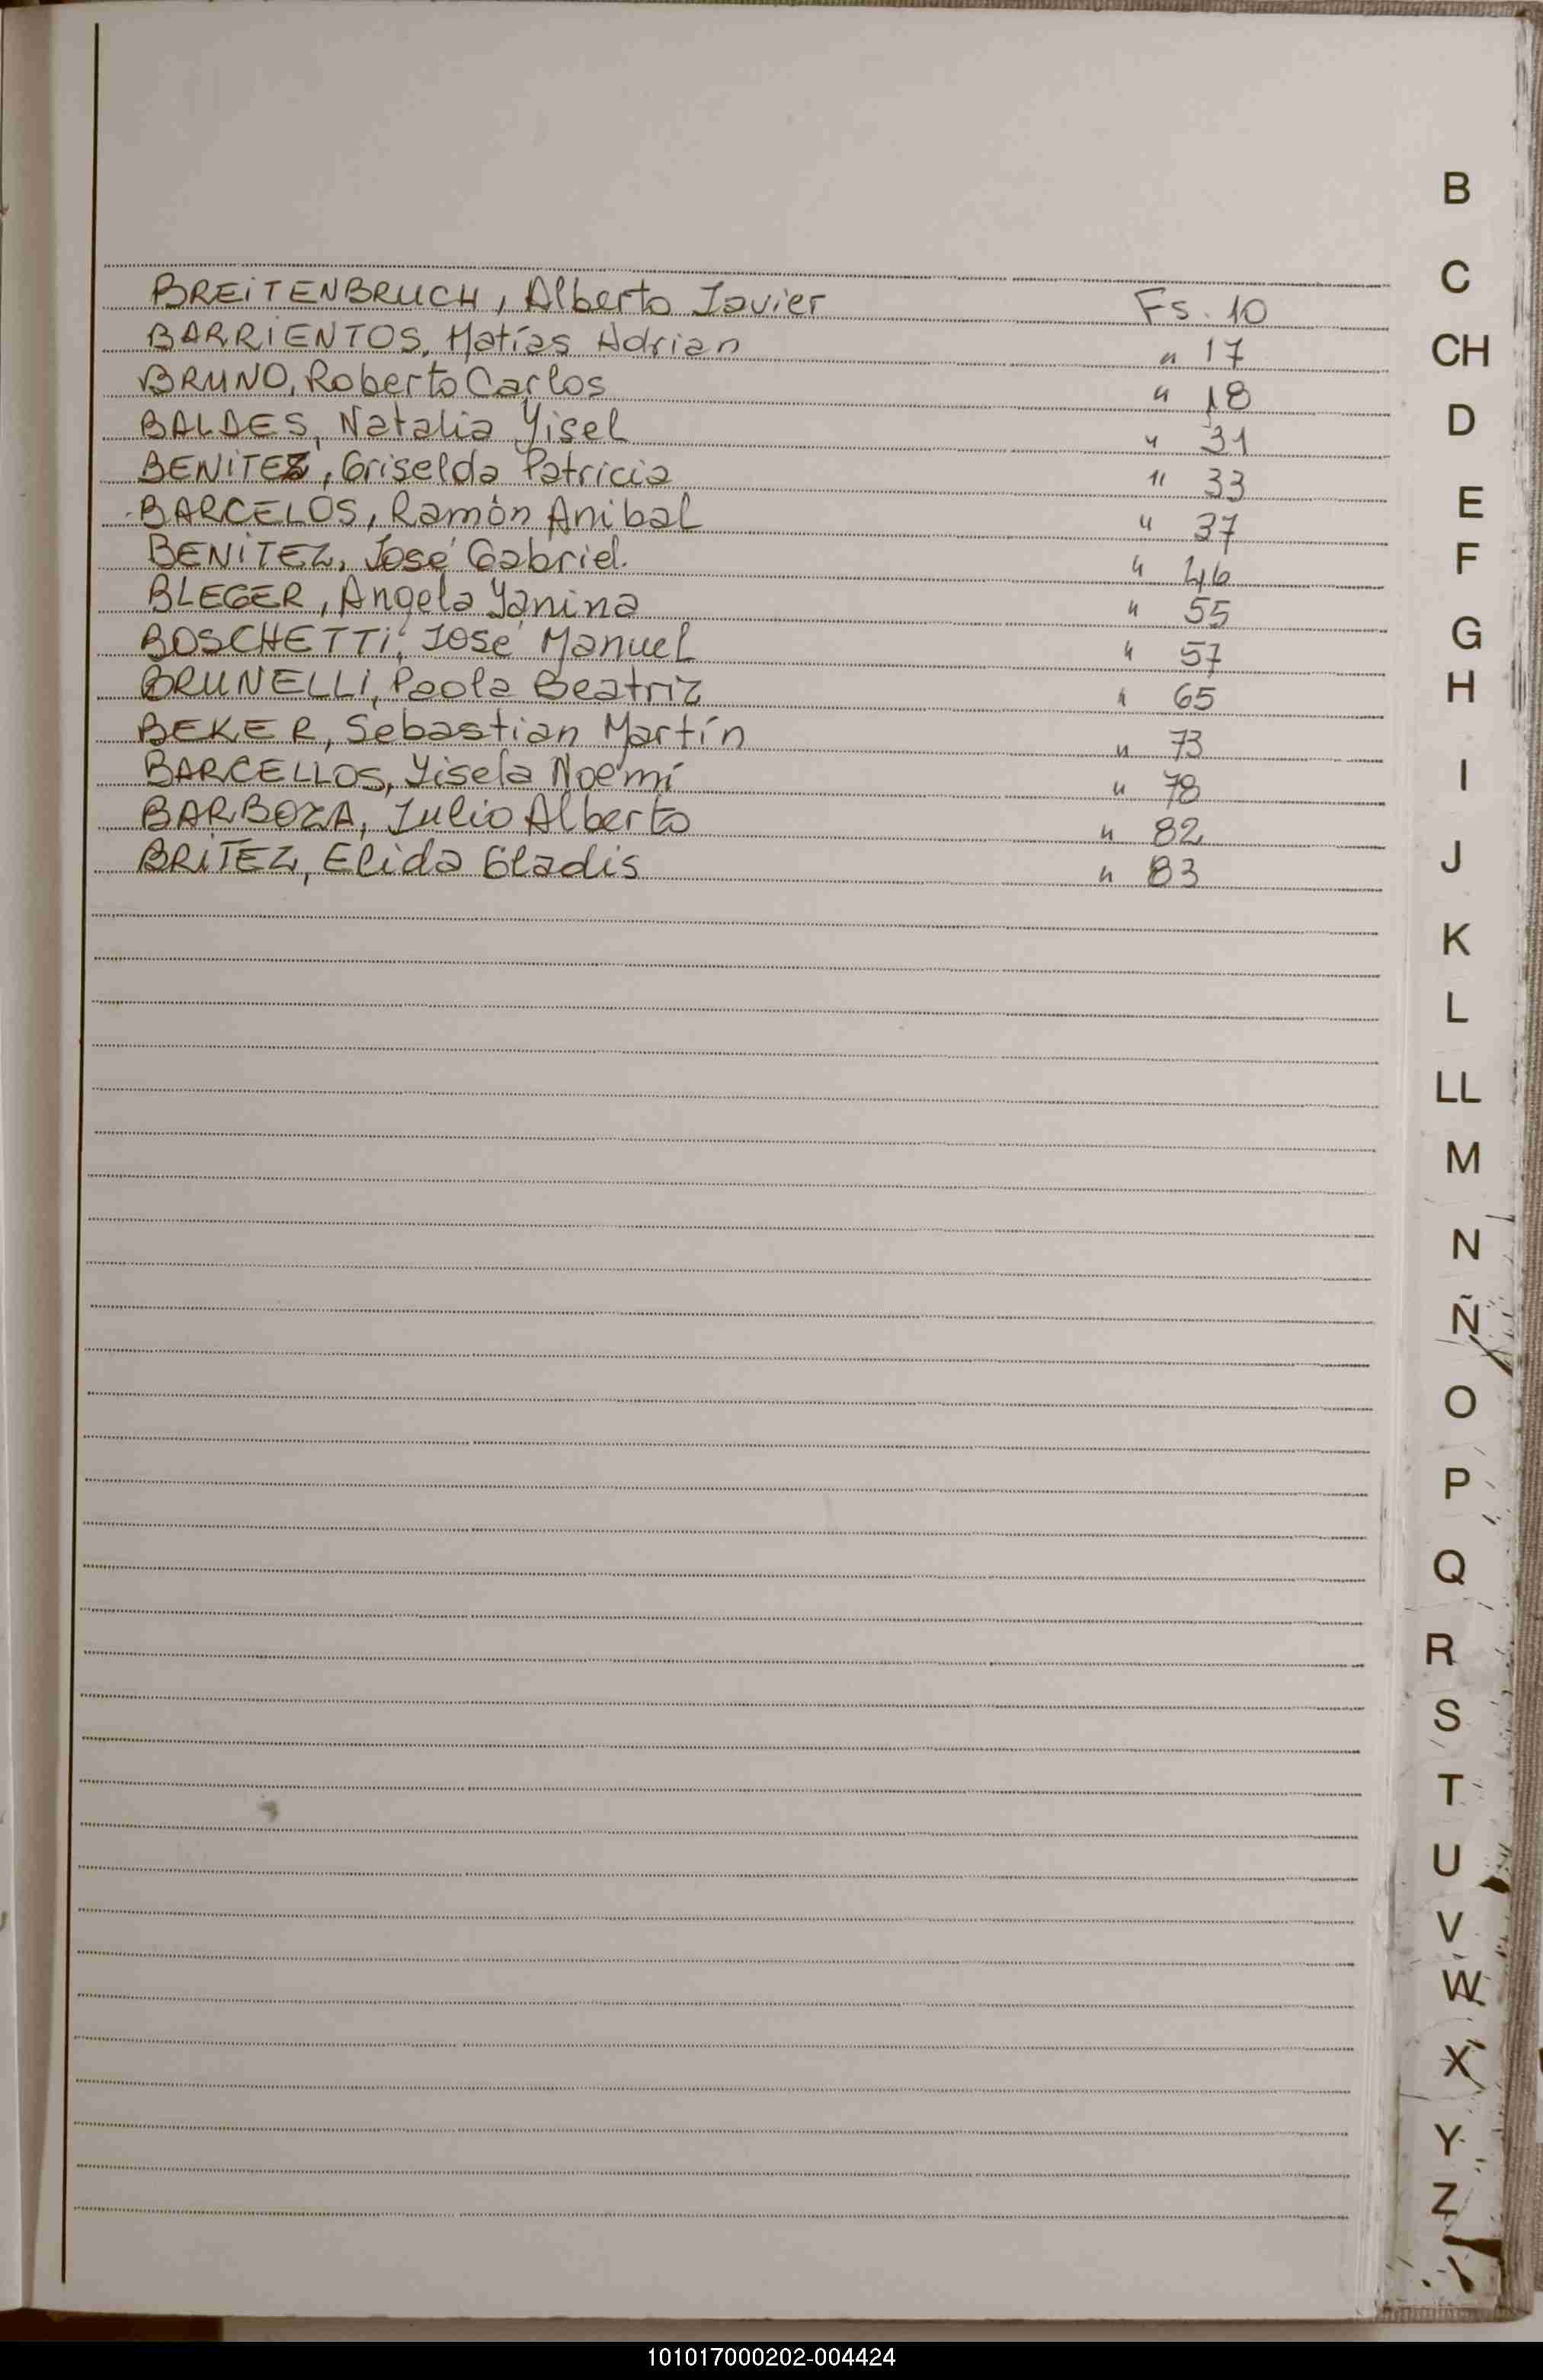 BREITENBRUCH, Alberto Javier Fs. 10
BARRIENTOS, Matías Adrian " 17
BRUNO, Roberto Carlos " 18
BALDES, Natalia Yisel " 31
BENITEZ, Griselda Patricia " 33
BARCELOS, Ramón Anibal " 37
BENITEZ, José Gabriel. " 46
BLEGER, Angela Yanina " 55
BOSCHETTI, José Manuel " 57
BRUNELLI, Paola Beatriz " 65
BEKER, Sebastian Martín " 73
BARCELLOS, Yisela Noemí " 78
BARBOZA, Julio Alberto " 82
BRITEZ, Elida Gladis " 83
B
C
CH
D
E
F
G
H
I
J
K
L
LL
M
N
Ñ
O
P
Q
R
S
T
U
V
W
X
Y
Z
101017000202-004424